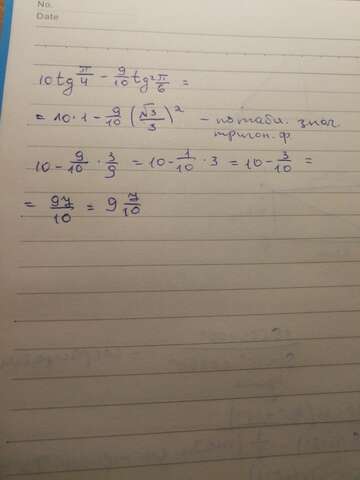 No.
Date
10 tg π/4 - 9/10 tg² π/6 =
= 10·1 - 9/10 (√3/3)² - по табл. знач
тригон. ф
10 - 9/10 · 3/9 = 10 - 1/10 · 3 = 10 - 3/10 =
= 97/10 = 9 7/10